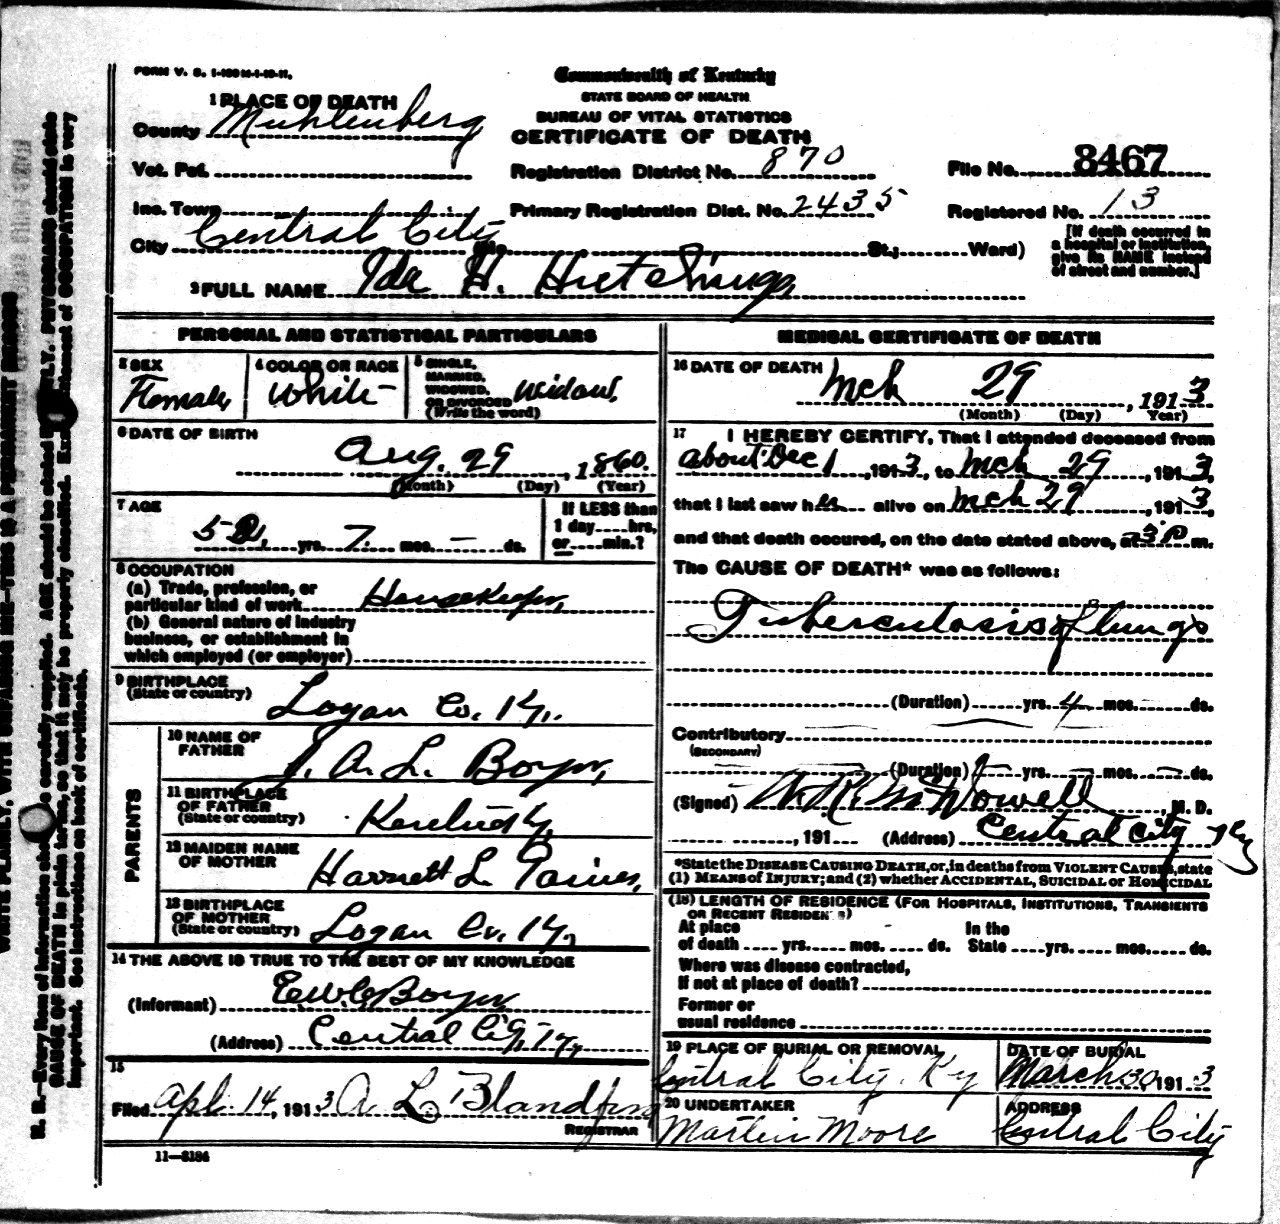 FORM V. S. 1-100M-1-10-11.
Commonwealth of Kentucky
STATE BOARD OF HEALTH
BUREAU OF VITAL STATISTICS
CERTIFICATE OF DEATH
1 PLACE OF DEATH
County Muhlenberg
Vot. Pct.
Registration District No. 870
File No. 8467
Inc. Town
Primary Registration Dist. No. 2435
Registered No. 13
City Central City (No. St.; Ward)
[If death occurred in a hospital or institution, give its NAME instead of street and number.]
2 FULL NAME Ida H. Hutchings
PERSONAL AND STATISTICAL PARTICULARS
3 SEX Female
4 COLOR OR RACE White
5 SINGLE, MARRIED, WIDOWED, OR DIVORCED (Write the word) Widow.
6 DATE OF BIRTH
Aug. 29, 1860.
(Month) (Day) (Year)
7 AGE
52 yrs. 7 mos. — ds.
If LESS than 1 day....hrs, or....min.?
8 OCCUPATION
(a) Trade, profession, or particular kind of work Housekeeper,
(b) General nature of industry business, or establishment in which employed (or employer)
9 BIRTHPLACE (State or country) Logan Co. Ky.
PARENTS
10 NAME OF FATHER J. A. L. Boyer,
11 BIRTHPLACE OF FATHER (State or country)
12 MAIDEN NAME OF MOTHER Harriett L.
13 BIRTHPLACE OF MOTHER (State or country) Logan Co. Ky,
14 THE ABOVE IS TRUE TO THE BEST OF MY KNOWLEDGE
(Informant) Boyer
(Address) Central City, Ky,
15
Filed Apl. 14, 1913 A. L. Blandford
REGISTRAR
11—8184
MEDICAL CERTIFICATE OF DEATH
16 DATE OF DEATH Mch 29, 1913
(Month) (Day) Year)
17 I HEREBY CERTIFY, That I attended deceased from
about Dec 1, 1913, to Mch 29, 1913,
that I last saw her alive on Mch 29, 1913,
and that death occured, on the date stated above, at 3 P m.
The CAUSE OF DEATH* was as follows:
Tuberculosis of lungs
(Duration) yrs. 4 mos. ds.
Contributory
(SECONDARY)
(Duration) — yrs. — mos. — ds.
(Signed) W. R. McDowell, M. D.
, 191 (Address) Central City Ky
*State the DISEASE CAUSING DEATH, or, in deaths from VIOLENT CAUSES, state
(1) MEANS of INJURY; and (2) whether ACCIDENTAL, SUICIDAL or HOMICIDAL
(18) LENGTH OF RESIDENCE (FOR HOSPITALS, INSTITUTIONS, TRANSIENTS
OR RECENT RESIDENTS)
At place of death .... yrs. .... mos. .... ds. In the State .... yrs. .... mos. .... ds.
Where was disease contracted,
If not at place of death?
Former or
usual residence
19 PLACE OF BURIAL OR REMOVAL
Central City, Ky
DATE OF BURIAL
March 30 1913
20 UNDERTAKER
Martin Moore
ADDRESS
Central City
WRITE PLAINLY, WITH UNFADING INK—THIS IS A PERMANENT RECORD
N. B.—Every item of information should be carefully supplied. AGE should be stated EXACTLY. PHYSICIANS should state
CAUSE OF DEATH in plain terms, so that it may be properly classified. Exact statement of OCCUPATION is very
important. See instructions on back of certificate.